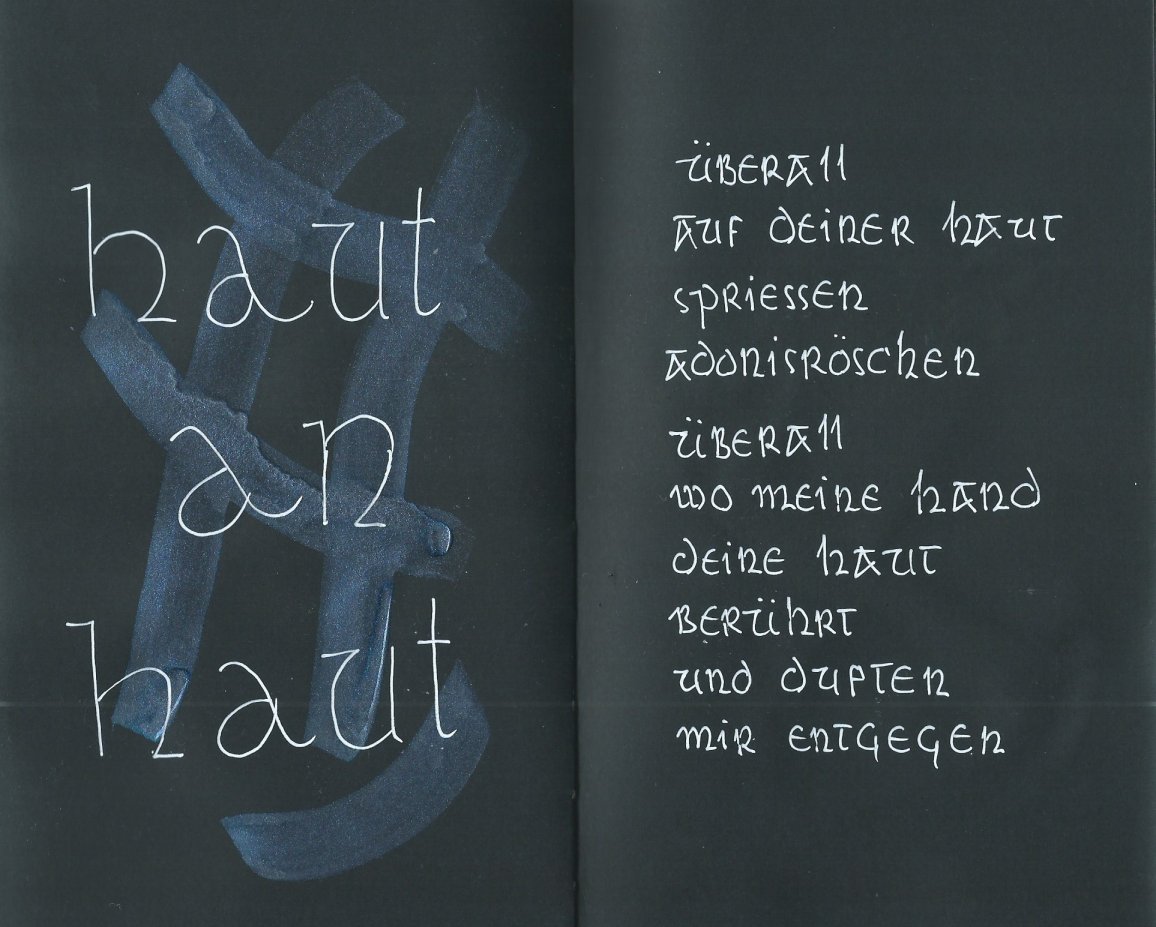 haut
an
haut
überall
auf deiner haut
spriessen
adonisröschen
überall
wo meine hand
deine haut
berührt
und duften
mir entgegen